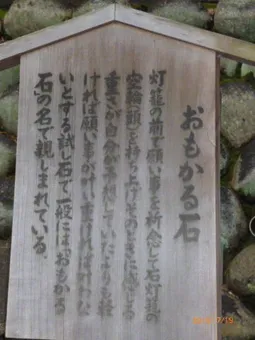 おもかる石
灯籠の前で願い事を祈念して石灯籠の
空輪(頭)を持ち上げそのときに感じる
重さが自分が予想していたよりも軽
ければ願い事が叶い重ければ叶わな
いとする試し石で一般にはおもかる
石の名で親しまれている。